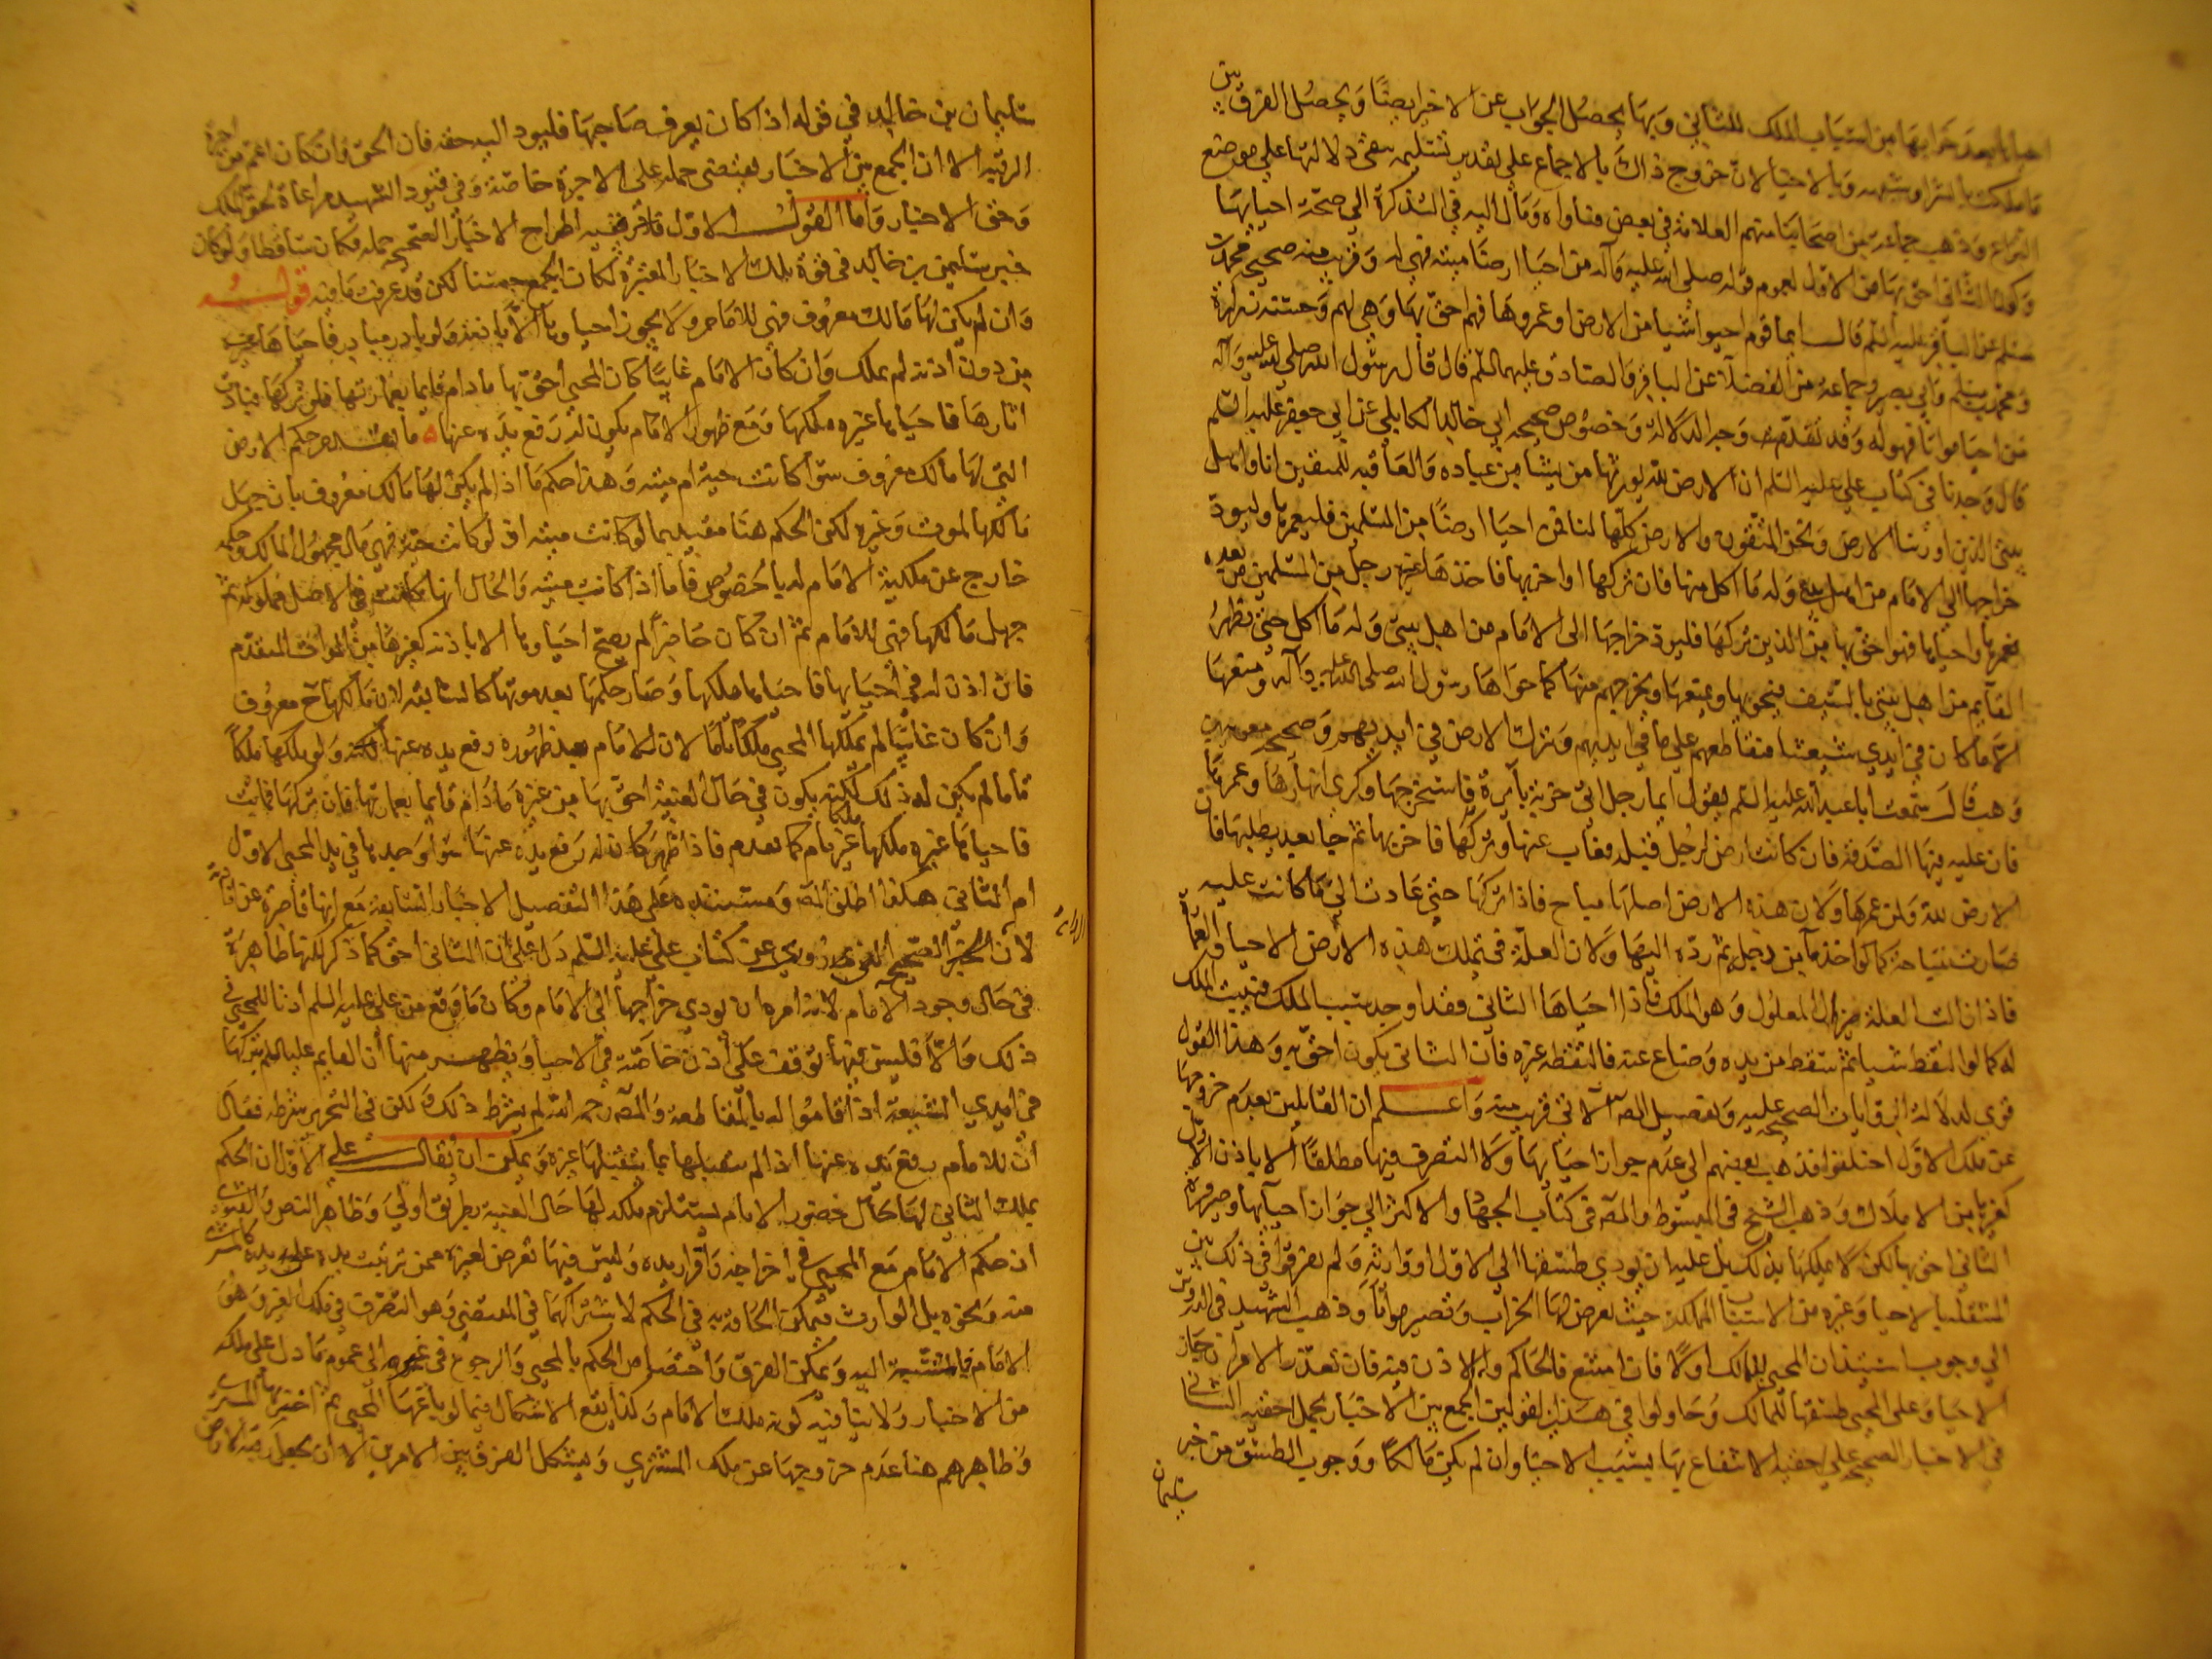 احياها بعد خرابها من اسباب الملك للثاني وبها يحصل الجواب عن الاخير ايضا ويحصل الفرق بين
ما ملكت بالشراء وشبهه وبالاحيا لان خروج ذاك بالاجماع على تقدير تسليمه ينفى دلالتها على موضع
النزاع وذهب جماعة من اصحابنا منهم العلامة في بعض فتاواه ومال اليه في التذكرة الى صحة احيائها
وكون الثاني احق بها من الاول لعموم قوله صلى الله عليه وآله من احيا ارضا ميتة فهي له وقريب منه صحيحة محمد بن
مسلم عن الباقر عليه السلم قال ايما قوم احيوا شيا من الارض او عمروها فهم احق بها وهي لهم وحسنة زرارة
ومحمد بن مسلم وابي بصير وجماعة من الفضلا عن الباقر والصادق عليهما السلم قال قال رسول الله صلى الله عليه وآله
من احيا مواتا فهو له وقد تقدم وجه الدلالة وخصوص صحيحة ابي خالد الكابلي عن ابي جعفر عليه السلم
قال وجدنا في كتاب علي عليه السلم ان الارض لله يورثها من يشا من عباده والعاقبة للمتقين انا واهل
بيتي الذين اورثنا الارض ونحن المتقون والارض كلها لنا فمن احيا ارضا من المسلمين فليعمرها وليود
خراجها الى الامام من اهل بيتي وله ما اكل منها فان تركها او اخربها فاخذها رجل من المسلمين من بعده
فعمرها واحياها فهو احق بها من الذي تركها فليود خراجها الى الامام من اهل بيتي وله ما اكل حتى يظهر
القايم من اهل بيتي بالسيف فيحويها ويمنعها ويخرجهم منها كما حواها رسول الله صلى الله عليه وآله ومنعها
الا ما كان في ايدي شيعتنا فيقاطعهم على ما في ايديهم ويترك الارض في ايديهم وصحيحة معوية بن
وهب قال سمعت ابا عبد الله عليه السلم يقول ايما رجل اتى خربة بايرة فاستخرجها وكرى انهارها وعمرها
فان عليه فيها الصدقة فان كانت ارض لرجل قبله فغاب عنها وتركها فاخربها ثم جا بعد يطلبها فان
الارض لله ولمن عمرها ولان هذه الارض اصلها مباح فاذا تركها حتى عادت الى ما كانت عليه
صارت مباحة كما لو اخذ ماء من دجلة ثم رده اليها ولان العلة في تملك هذه الارض الاحيا والعمارة
فاذا زالت العلة زال المعلول وهو الملك فاذا احياها الثاني فقد اوجد سبب الملك فيثبت الملك
له كما لو التقط شيا ثم سقط من يده وضاع عنه فالتقطه غيره فان الثاني يكون احق به وهذا القول
قوي لدلالة الروايات الصحيحة عليه وتفصيل المصه الاتي قريب منه واعلم ان القايلين بعدم خروجها
عن ملك الاول اختلفوا فذهب بعضهم الى عدم جواز احيائها ولا التصرف فيها مطلقا الا باذن الاول
كغيرها من الاملاك وذهب الشيخ في المبسوط والمصه في كتاب الجهاد والاكثر الى جواز احيائها وصيرورة
الثاني احق بها لكن لا يملكها بذلك بل عليه ان يودي طسقها الى الاول او وارثه ولم يفرقوا في ذلك بين
المنتقلة بالاحيا وغيره من الاسباب المملكة حيث يعرض لها الخراب وتصير مواتا وذهب الشهيد في الدروس
الى وجوب استيذان المحيي للمالك اولا فان امتنع فالحاكم والاذن منه فان تعذر الامران جاز
الاحيا وعلى المحيي طسقها للمالك وحاولوا في هذين القولين الجمع بين الاخبار بحمل احقية الثاني
في الاخبار الصحيحة على احقية الانتفاع بها بسبب الاحيا وان لم يكن مالكا ووجوب الطسق من خبر
سليمان
سليمان بن خالد في قوله اذا كان يعرف صاحبها فليود اليه حقه فان الحق وان كان اعم من اجرة
الرقبة الا ان الجمع بين الاخبار يقتضى حمله على الاجرة خاصة وفي قيود الشهيد مراعاة لحق الملك
وحق الاخبار واما القول الاول ففيه اطراح الاخبار الصحيحة جملة فكان ساقطا ولو كان
خبر سليمن بن خالد في قوة تلك الاخبار المعتبرة لكان الجمع حسنا لكن قد عرفت ما فيه قوله
وان لم يكن لها مالك معروف فهي للامام ولا يجوز احياوها الا باذنه ولو بادر مبادر فاحياها
من دون اذنه لم يملك وان كان الامام غايبا كان المحيي احق بها ما دام قايما بعمارتها فلو تركها فبادت
اثارها فاحياها غيره ملكها ومع ظهور الامام يكون له رفع يده عنها ما تقدم حكم الارض
التي لها مالك معروف سوآ كانت حية ام ميتة وهذا حكم ما اذا لم يكن لها مالك معروف بان جهل
مالكها لموت وغيره لكن الحكم هنا مقيد بما لو كانت ميتة اذ لو كانت حية فهي مال مجهول المالك وحكمه
خارج عن ملكية الامام له بالخصوص فاما اذا كانت ميتة والحال انها كانت في الاصل مملوكة ثم
جهل مالكها فهي للامام ثم ان كان حاضرا لم يصح احياوها الا باذنه كغيرها من الموات المتقدم
فان اذن له في احيايها فاحياها ملكها وصار حكمها بعد موتها كالسابقة لان مالكها ح معروف
وان كان غايبا لم يملكها المحيي ملكا تاما لان للامام بعد ظهوره رفع يده عنها ولو ملكها ملكا
تاما لم يكن له ذلك لكنه يكون في حال الغيبة احق بها من غيره ما دام قايما بعمارتها فان تركها فماتت
فاحياها غيره ملكها ملكا غير تام كما تقدم فاذا ظهر كان له رفع يده عنها سوآ وجدها في يد المحيي الاول
ام الثاني هكذا اطلق المصه ومستنده على هذا التفصيل الاخبار السابقة مع انها قاصرة عن افادته
لان الخبر الصحيح الذي روي عن كتاب علي عليه السلم دل على ان الثاني احق كما ذكر لكنها ظاهرة
في حال وجود الامام لانه امره ان يودي خراجها الى الامام وكان ما وقع من علي عليه السلم اذنا للمحيي في
ذلك والا فليس فيها توقف على اذن خاصة في الاحيا ويظهر منها ان القايم عليه السلم يتركها
في ايدي الشيعة اذا قاموا له بالمقاطعة والمصه رحمه الله لم يشرط ذلك ولكن في التحرير شرطه فقال
ان للامام رفع يده عنها اذا لم يتقبلها بما يتقبلها غيره ويمكن ان يقال على الاول ان الحكم
بملك الثاني لها حال حضور الامام يستلزم ملكه لها حال الغيبة بطريق اولى وظاهر النص والفتوى
ان حكم الامام مع المحيي في اخراجه واقرار يده وليس فيها تعرض لغيره ممن ترتبت يده على يده كالمشتري
منه ونحوه بل الوارث فيمكن الحاقه به في الحكم لاشتراكهما في المقتضي وهو التصرف في ملك الغير وهو
الامام بالنسبة اليه ويمكن الفرق واختصاص الحكم بالمحيي والرجوع في غيره الى عموم ما دل على ملكه
من الاخبار ولا ينافيه كونه ملك الامام وكذا يقع الاشكال فيما لو باعها المحيي ثم اخربها المشتري
وظاهرهم هنا عدم خروجها عن ملك المشتري ويشكل الفرق بين الامرين الا ان يجعل رقبة الارض